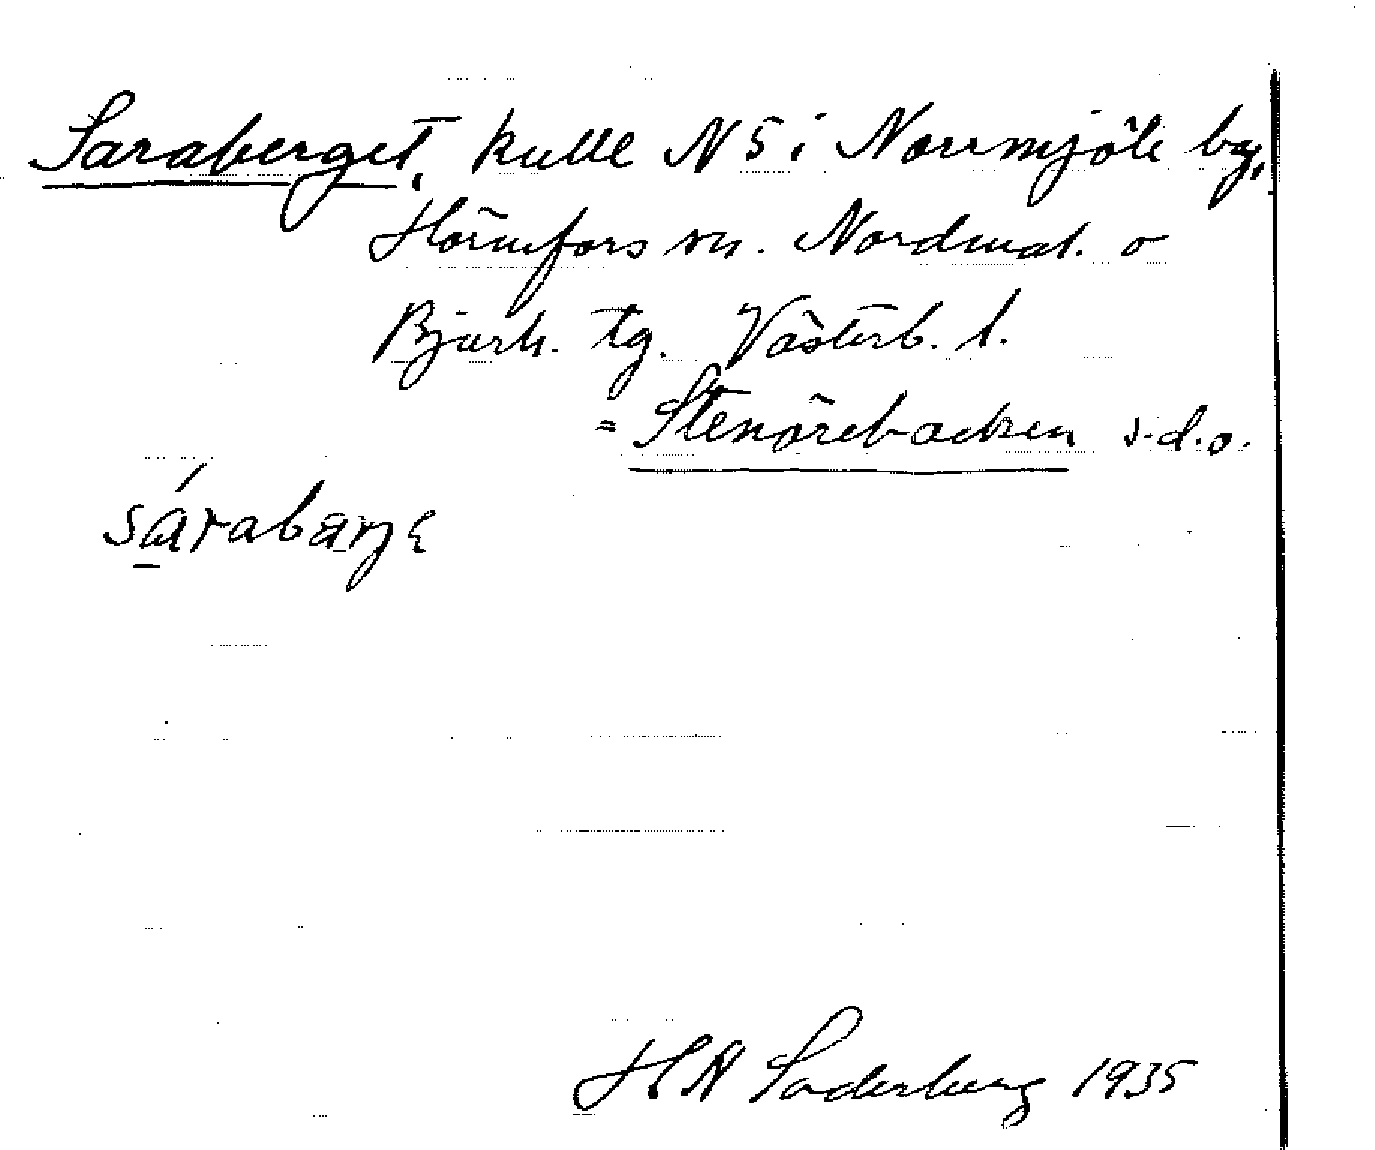 Saraberget, kulle N 5 i Norrmjöle by,
Hörnefors sn. Nordmal. o
Bjurh. tg. Västerb. l.
= Stenörebacken s.d.o.
sárabarje
H Söderberg 1935